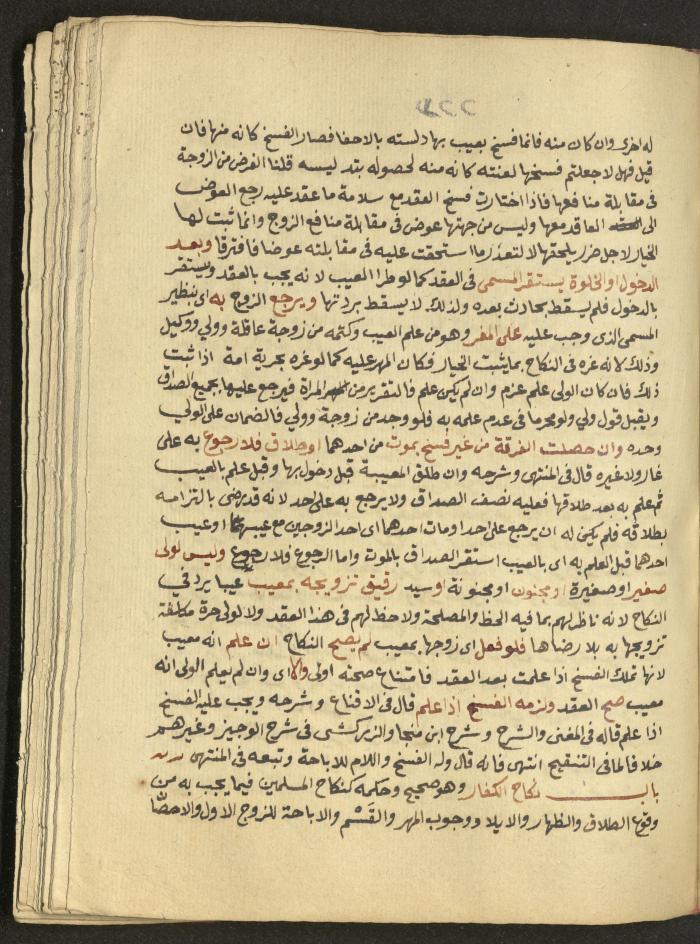 ٢٢٣
له اخرى وان كان منه فانما فسخ بعيب بها دلسته بالاخفا فصار الفسخ كانه منها فان
قيل فهلا جعلتم فسخها لعنته كانه منه لحصوله بتدليسه قلنا العوض من الزوجة
في مقابلة منافعها فاذا اختارت فسخ العقد مع سلامة ما عقد عليه رجع العوض
الى العاقد معها وليس من جهتها عوض في مقابلة منافع الزوج وانما ثبت لها
الخيار لاجل ضرر يلحقها لا لتعذر ما استحقت عليه في مقابلته عوضا فافترقا وبعد
الدخول او الخلوة يستقر المسمى في العقد كما لو طرا العيب لانه يجب بالعقد ويستقر
بالدخول فلم يسقط بحادث بعده ولذلك لا يسقط بردتها ويرجع الزوج به اي بنظير
المسمى الذي وجب عليه على المغر وهو من علم العيب وكتمه من زوجة عاقلة وولي ووكيل
وذلك لانه غره في النكاح بما يثبت الخيار فكان المهر عليه كما لو غره بحرية امة اذا ثبت
ذلك فان كان الولي علم غرم وان لم يكن علم فالتغرير من المراة فيرجع عليها بجميع الصداق
ويقبل قول ولي ولو محرما في عدم علمه به فلو وجد من زوجة وولي فالضمان على الولي
وحده وان حصلت الفرقة من غير فسخ بموت من احدهما او طلاق فلا رجوع به على
غار ولا غيره قال في المنتهى وشرحه وان طلق المعيبة قبل دخول بها وقبل علم بالعيب
ثم علم به بعد طلاقها فعليه نصف الصداق ولا يرجع به على احد لانه قد رضي بالتزامه
بطلاقه فلم يكن له ان يرجع على احد او مات احدهما اي احد الزوجين مع عيبهما او عيب
احدهما قبل العلم به اي بالعيب استقر الصداق بالموت واما الرجوع فلا رجوع وليس لولي
صغير او صغيرة او مجنون او مجنونة او سيد رقيق تزويجه بمعيب عيبا يرد في
النكاح لانه ناظر لهم بما فيه الحظ والمصلحة ولا حظ لهم في هذا العقد ولا لولي حرة مكلفة
تزويجها به بلا رضاها فلو فعل اي زوجها بمعيب لم يصح النكاح ان علم انه معيب
لانها تملك الفسخ اذا علمت بعد العقد فامتناع صحته اولى والا اي وان لم يعلم الولي انه
معيب صح العقد ولزمه الفسخ اذا علم قال في الاقناع وشرحه ويجب عليه الفسخ
اذا علم قاله في المغني والشرح وشرح ابن منجا والزركشي في شرح الوجيز وغيرهم
خلافا لما في التنقيح انتهى فانه قال وله الفسخ واللام للاباحة وتبعه في المنتهى
باب نكاح الكفار وهو صحيح وحكمه كنكاح المسلمين فيما يجب به من
وقوع الطلاق والظهار والايلا ووجوب المهر والقَسْم والاباحة للزوج الاول والاحصا